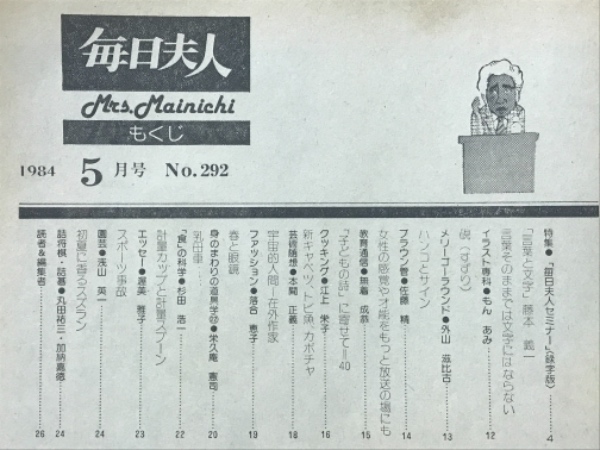 毎日夫人
Mrs.Mainichi
もくじ
1984 5月号 No.292
特集●「毎日夫人セミナー」〈誌字版〉……4
「言葉と文字」藤本 義一
言葉そのままでは文字にはならない
イラスト専科●もん あみ……12
硯（すずり）
メリーゴーラウンド●外山 滋比古……13
ハンコとサイン
ブラウン管●佐藤 精……14
女性の感覚や才能をもっと放送の場にも
教育通信●無着 成恭……15
「子どもの詩」に寄せて=40
クッキング●江上 栄子……16
新キャベツ、トビ魚、カボチャ
芸術随想●本間 正義……18
宇宙的人間―在外作家
ファッション●落合 恵子……19
春と眼鏡
身のまわりの道具学㉗●栄久庵 憲司……20
乳母車…
「食」の科学●杉田 浩一……22
計量カップと計量スプーン
エッセー●渥美 雅子……23
スポーツ事故
園芸●浅山 英一……24
初夏に香るスズラン
詰将棋・詰碁●丸田祐三・加納嘉徳……24
読者&編集者……26